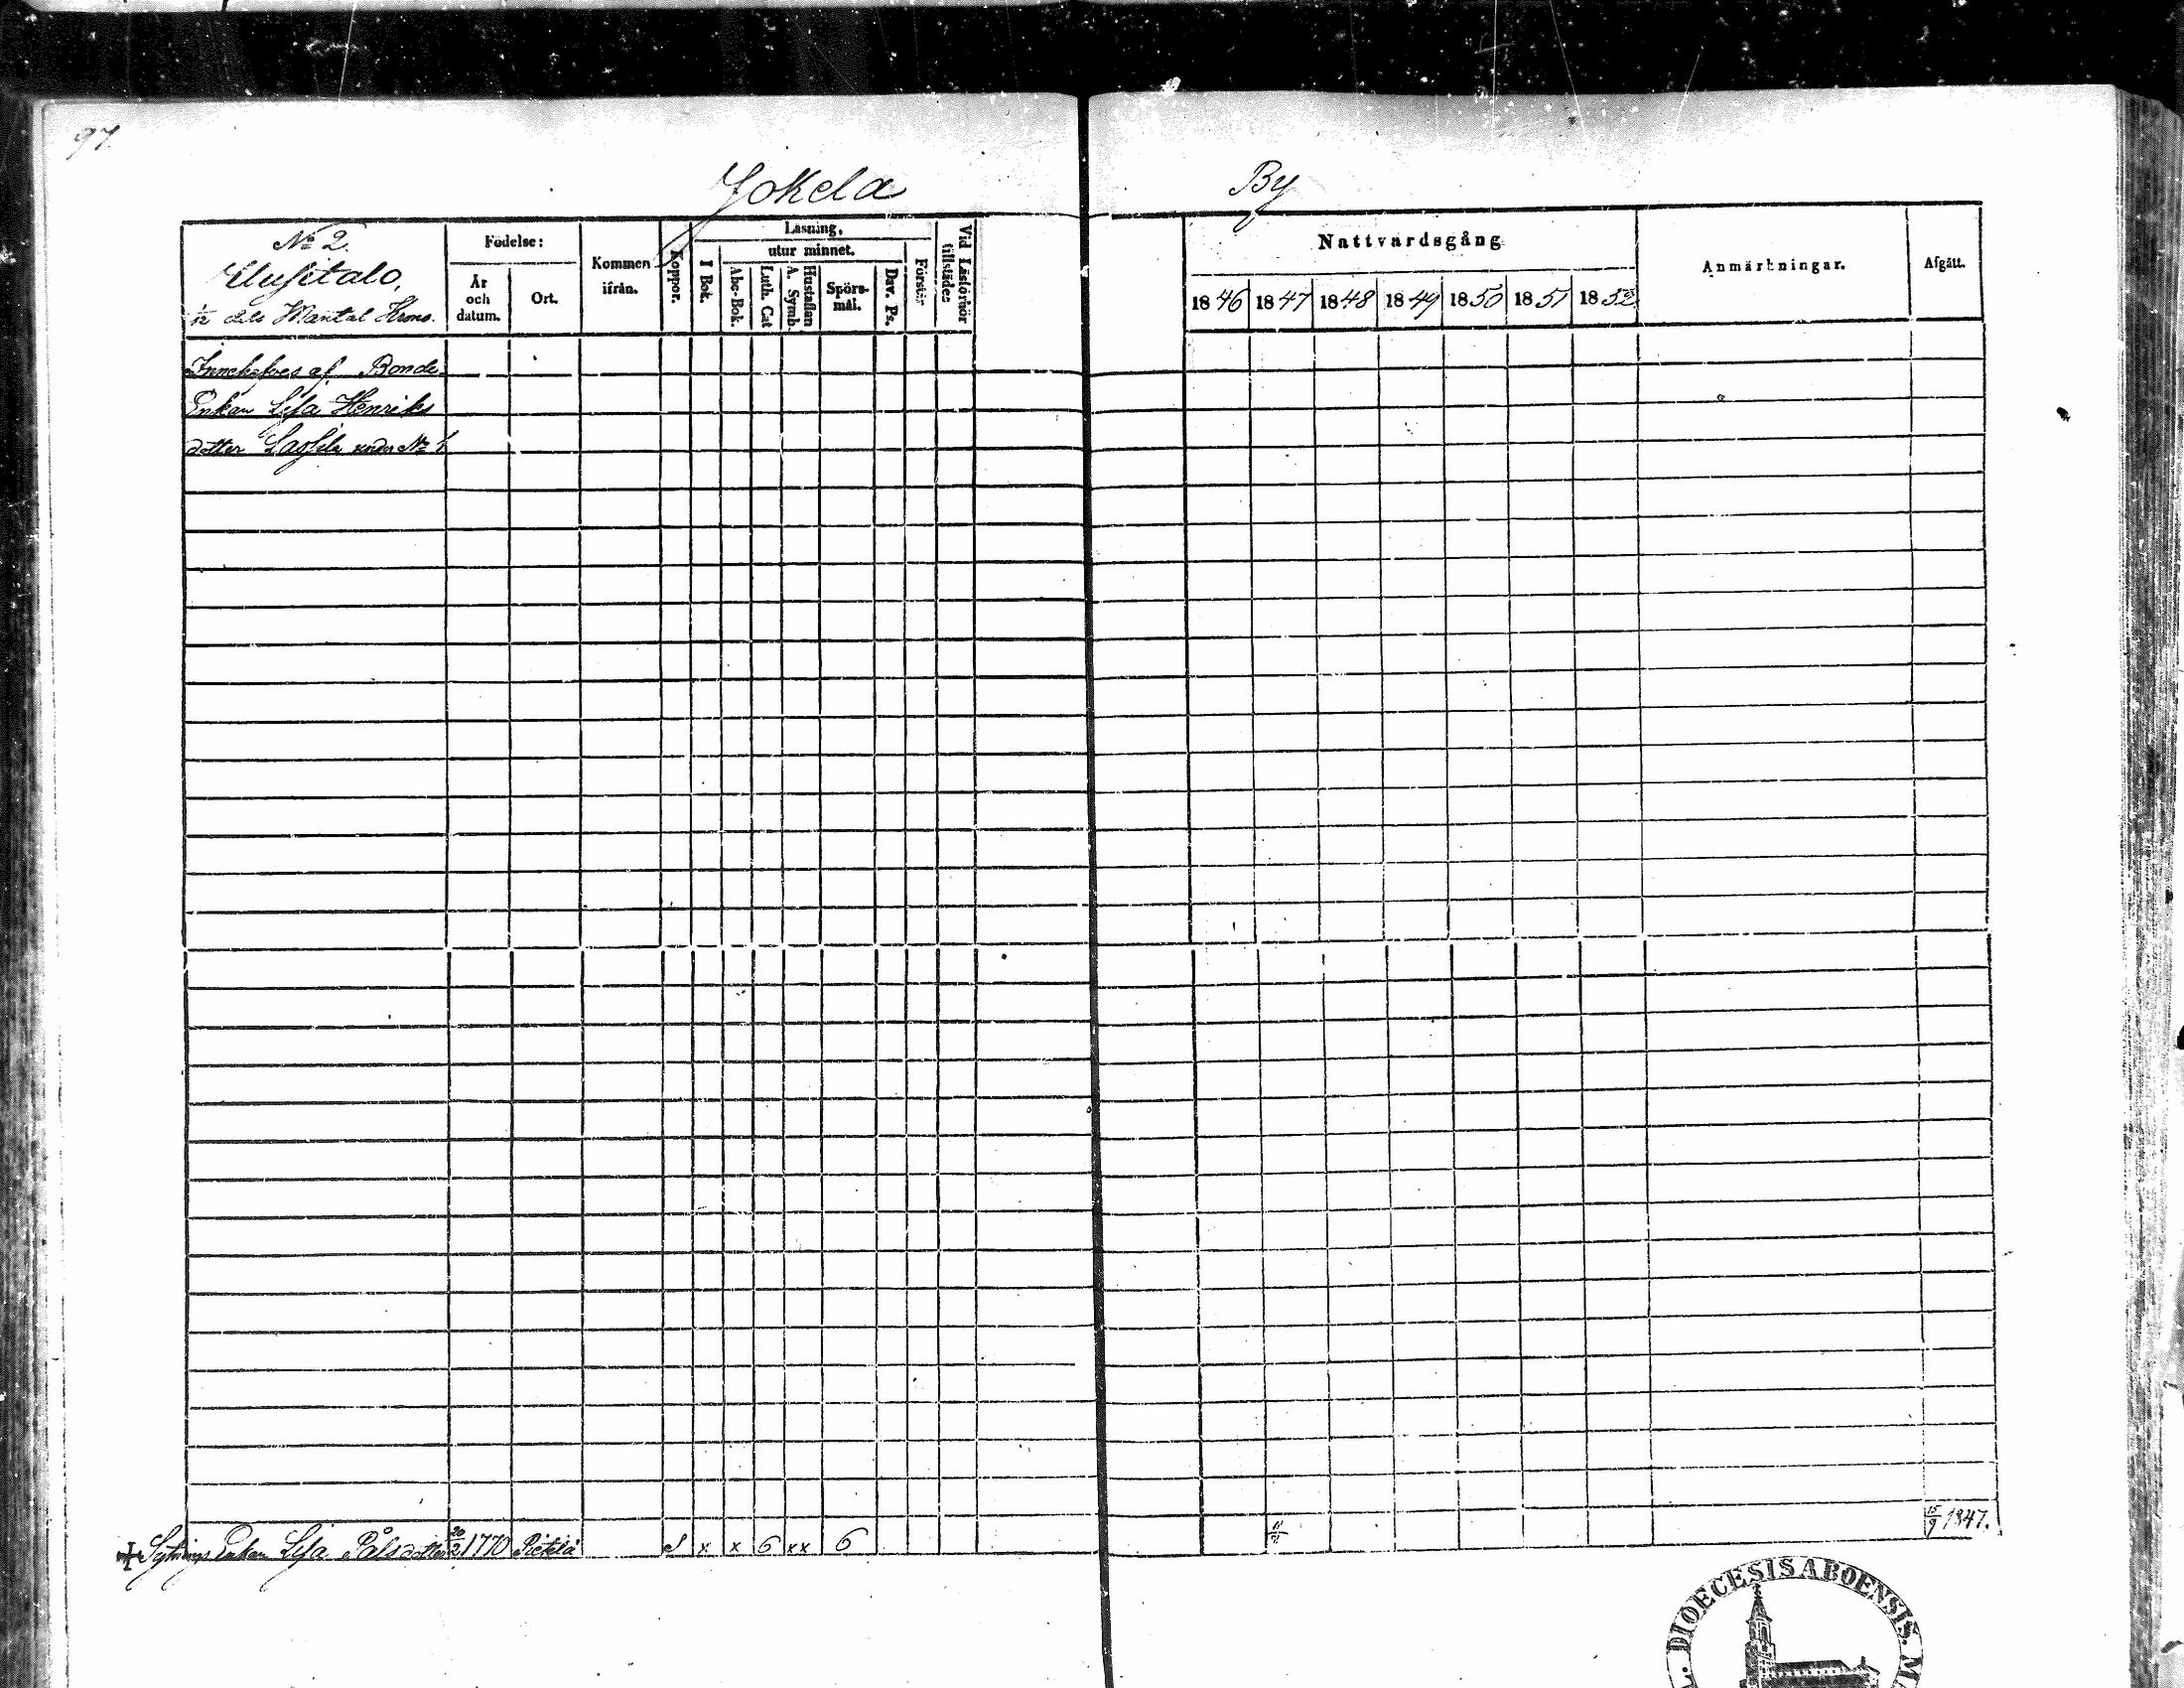 97.
Jokela By
No 2.
Uusitalo,
1/2 dels Mantal Krono.
Födelse:
År och datum.
Ort.
Kommen ifrån.
Koppor.
Läsning,
utur minnet.
I Bok.
Abc-Bok.
Luth. Cat
Hustaflan A. Symb.
Spörs-mål.
Dav. Ps.
Förstår
Vid Läsförhör tillstädes
Nattvardsgång
1846 1847 1848 1849 1850 1851 1852
Anmärkningar.
Afgått.
Innehafves af Bonde
Enkan Lisa Henriks
dotter Lassila under No 1
Sytnings Enkan Lisa Påls dotter 20/2 1770 Pietilä x x 6 xx 6 15/9 1847.
DIOECESIS ABOENSIS.